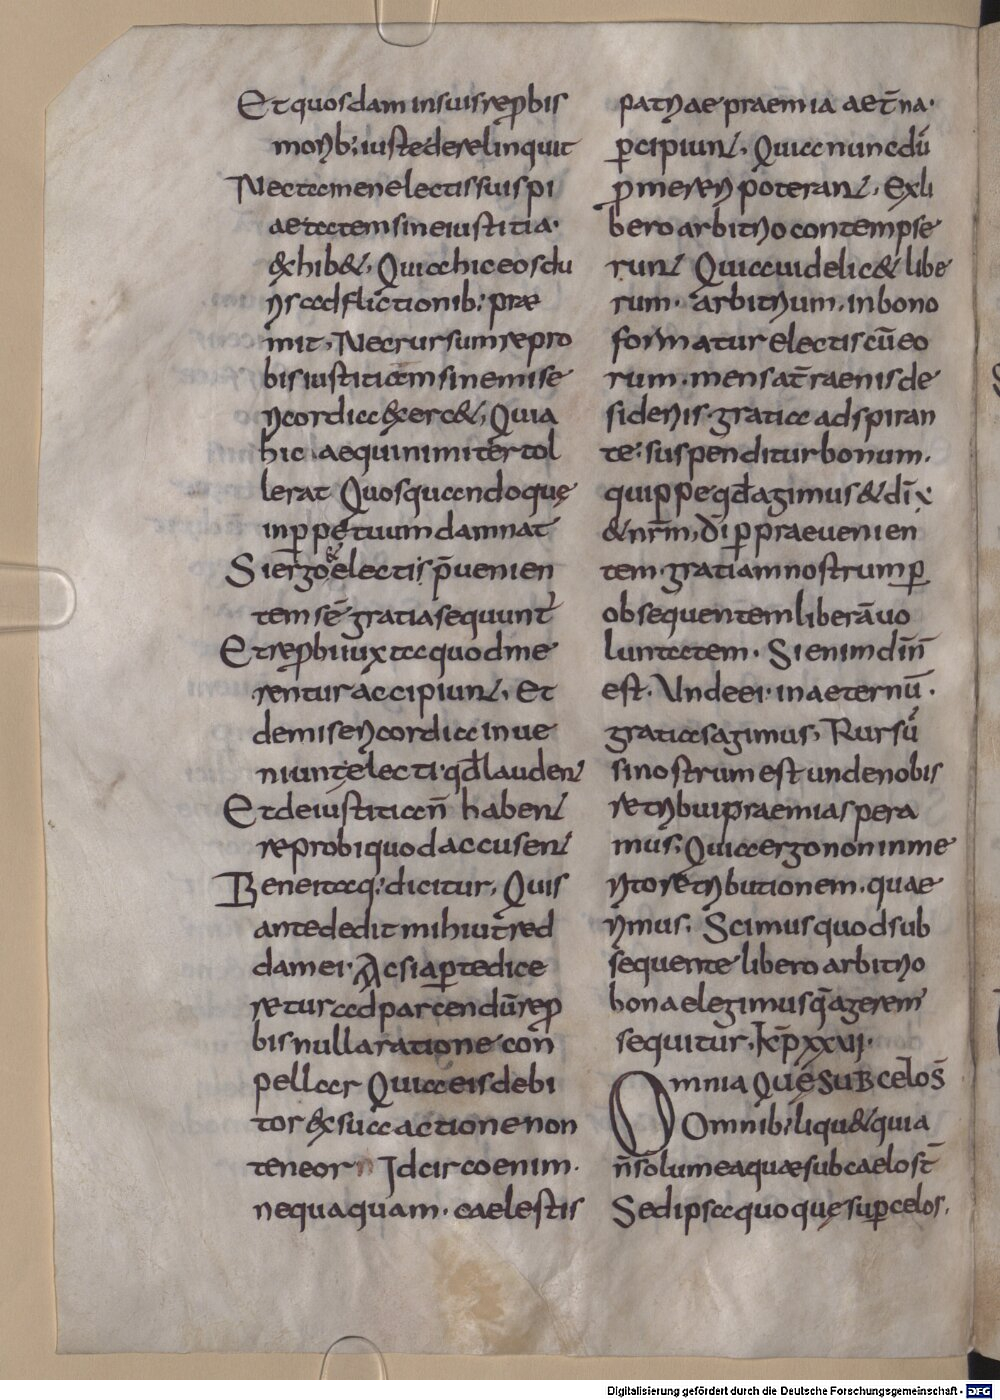 Et quosdam in suis rep̱bis
morib; iuste derelinquit
Nec tamen electis suis pi
aetatem sine iustitia·
&hib&, Quia hic eos du
ris adflictionib; præ
mit, Nec rursum repro
bis iustitiam sine mise
ricordia &xerc&, Quia
hic aequinimiter tol
lerat Quos quandoque
inp̱petuum damnat
Si ergo & electi sp̄uenien
tem sē gratia sequunt̄
Et rep̱bi iuxta quod me
rentur accipiunt, Et
de misericordia inue
niunt electi qd̄ laudent
Et de iustitia n̄ habent
reprobi quod accusent
Bene itaq; dicitur, Quis
ante dedit mihi ut red
dam ei· Ac si ap̱te dice
retur ad parcendū rep̱
bis nulla ratione con̄
pellar Quia eis debi
tor & sua actione non
teneor Idcirco enim·
nequaquam· caelestis
patriae praemia aet̄na·
p̱cipiunt, Quia nunc dū
p̱mereri poterant, Ex li
bero arbitrio contempse
runt Quia uidelic& libe
rum· arbitrium· in bono
formatur electis cū eo
rum· mens at̄raenis de
sideriis· gratia adspiran
te· suspenditur bonum.
quippe qd̄ agimus & dī ÷
& nrm̄, dī p̱ praeuenien
tem· gratiam nostrum p̱
obsequentem liberā uo
luntatem· Si enim dīn̄
est· Unde ei· in aeternū·
gratias agimus, Rursū
si nostrum est unde nobis
retribui praemia spera
mus; Quia ergo non inme
rito retributionem· quae
rimus; Scimus quod sub
sequente libero arbitrio
bona elegimus q̄ agerem̄
sequitur· Kp̄ xxvij·
Omnia quę sub cęlos̄
Omnib; liqu& quia
n̄ solum ea quæ sub caelo st̄
Sed ipsa quoque quę sup̱ celos,